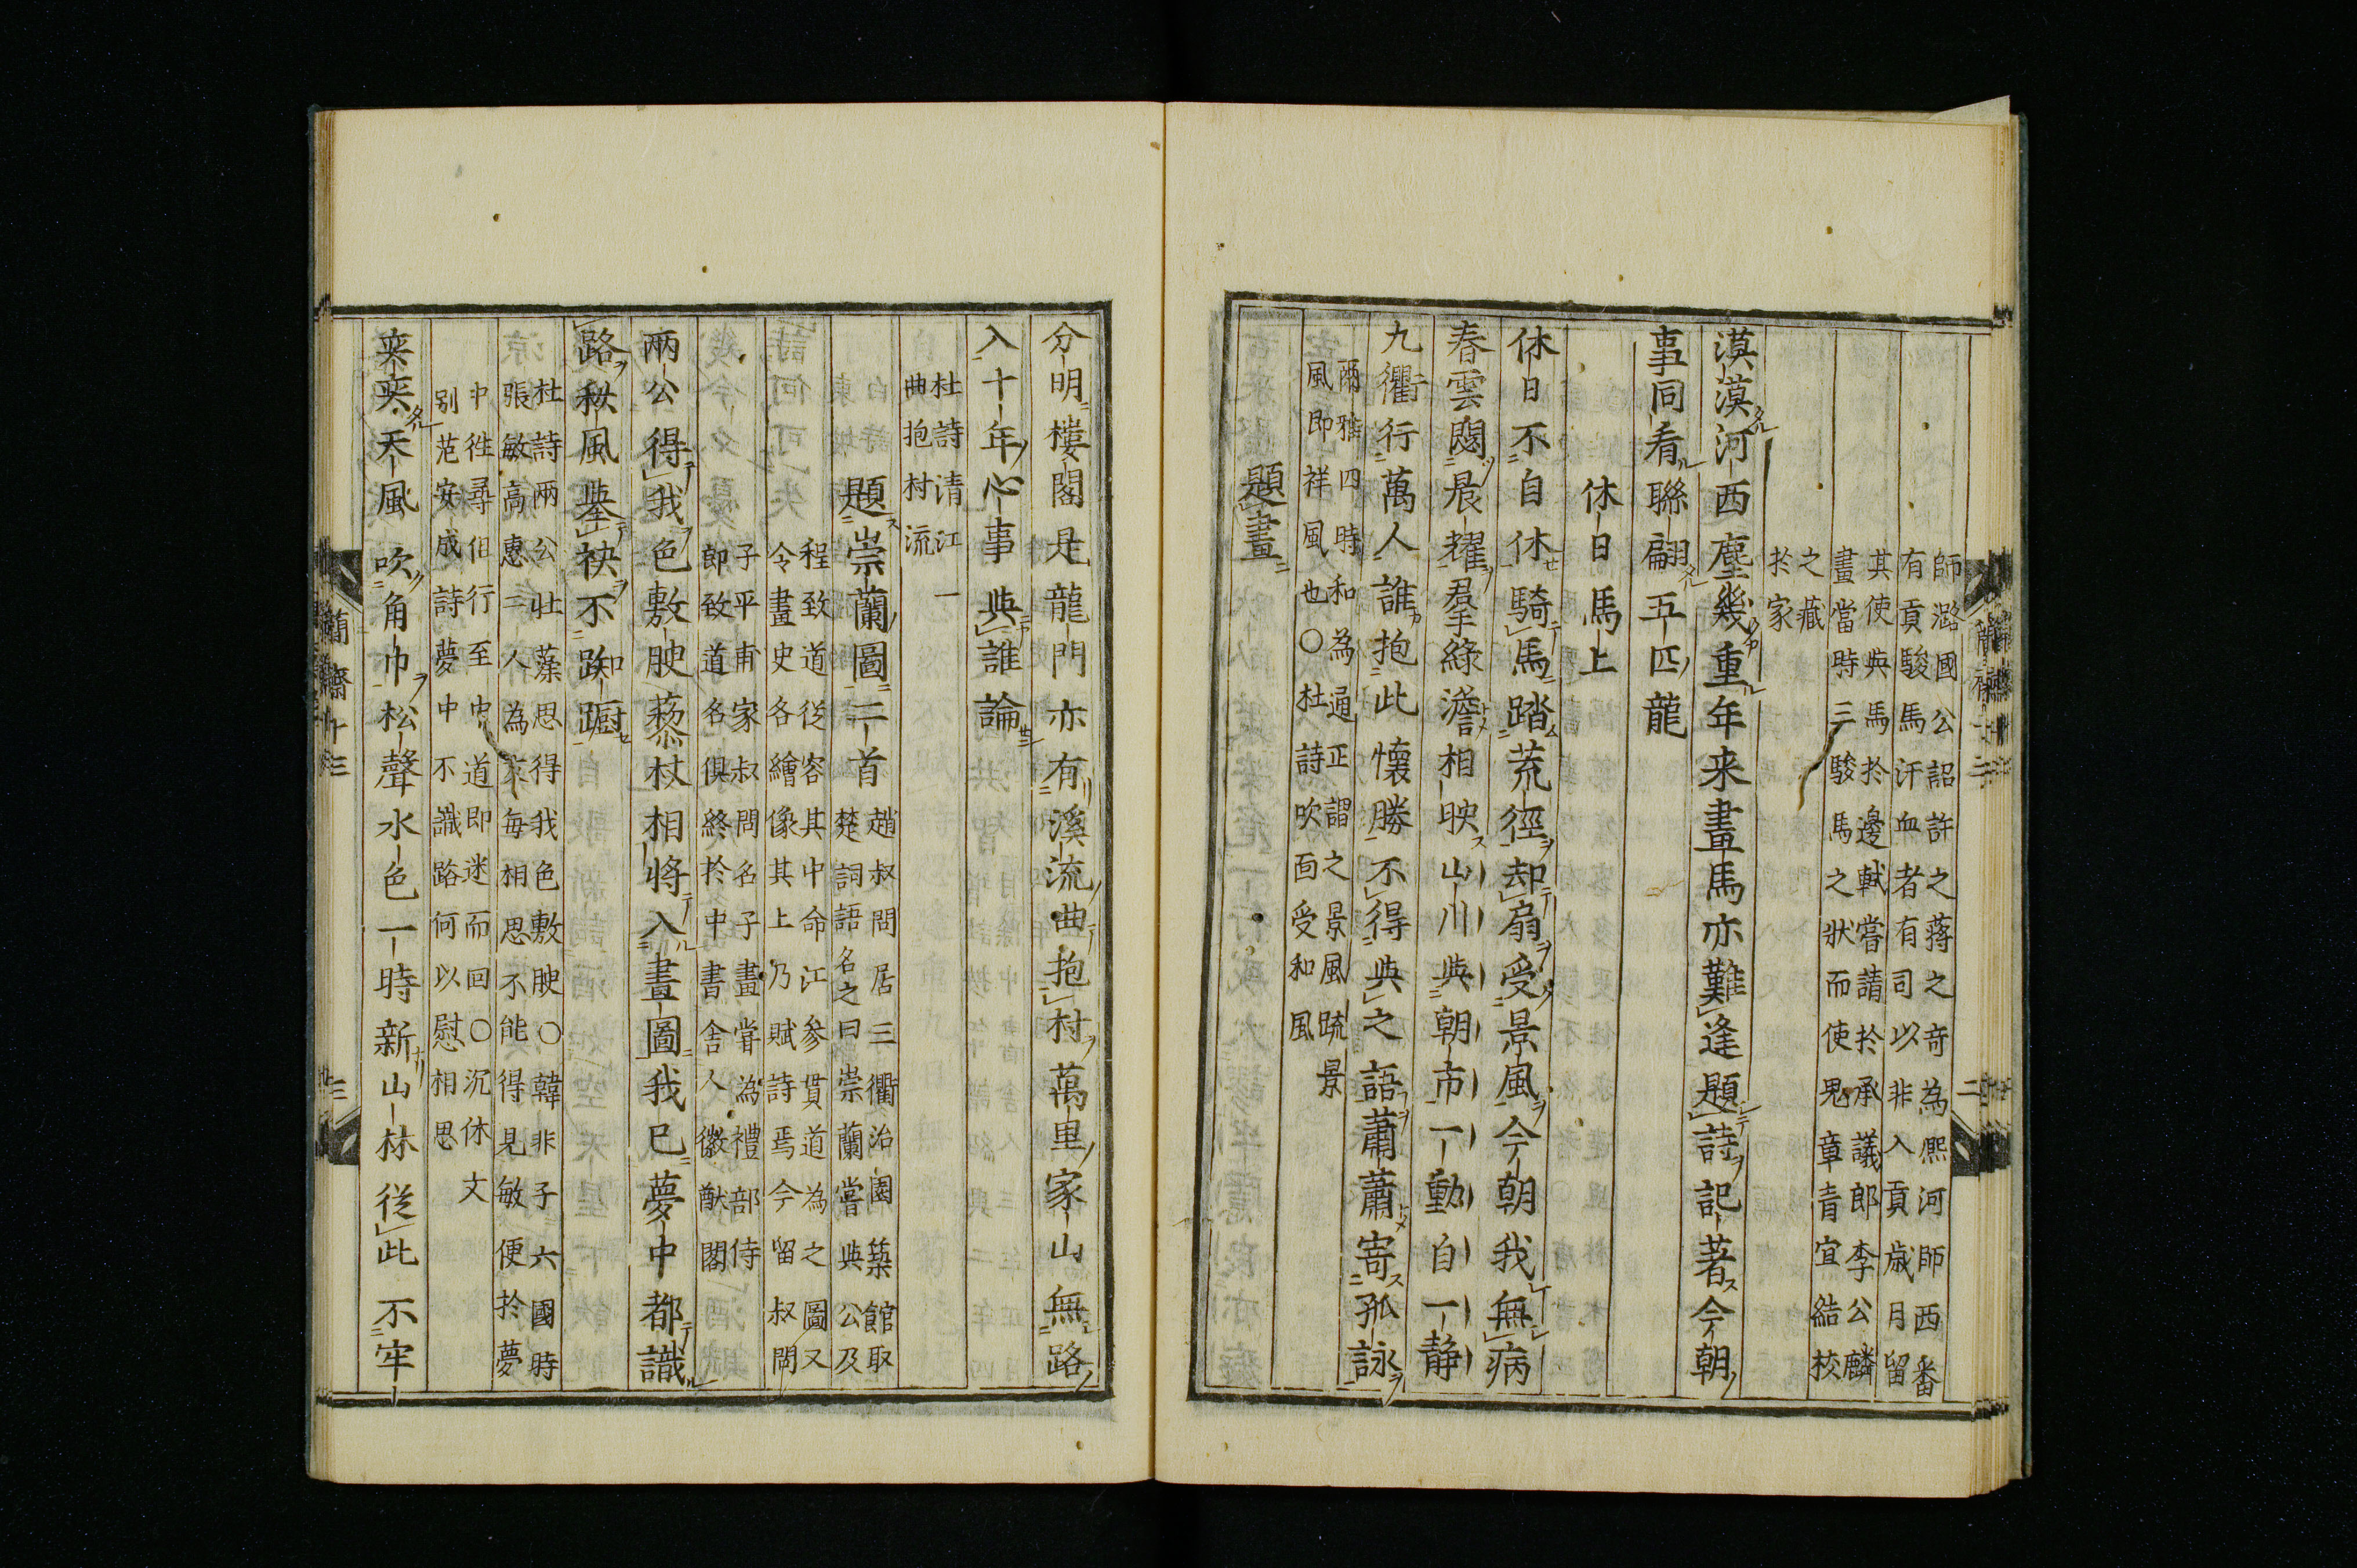 師潞國公詔許之蒋之奇為熈河師西番
有貢駿馬汗血者有司以非入貢歳月留
其使與馬於邊軾嘗請於承議郎李公麟
畫當時三駿馬之狀而使鬼章青宜結校
之藏
於家
漠漠河西塵幾重年来畫馬亦難逢題詩記著今朝
事同看聯翩五匹龍
休日馬上
休日不自休騎馬踏荒徑却扇受景風今朝我無病
春雲閟晨耀羣綠澹相映山川與朝市一動自一静
九衢行萬人誰抱此懐勝不得與之語蕭蕭寄孤詠
爾雅四時和為通正謂之景風䟽景
風即祥風也○杜詩吹面受和風
題畫
分明樓閣是龍門亦有溪流曲抱村萬里家山無路
入十年心事與誰論
杜詩清江一
曲抱村流
題崇蘭圖二首
趙叔問居三衢治園築館取
楚詞語名之曰崇蘭嘗與公及
程致道從容其中命江參貫道為之圖又
令畫史各繪像其上乃賦詩焉今留叔問
子平甫家叔問名子畫嘗為禮部侍
即致道名俱終於中書舍人徽猷閣
兩公得我色敷腴藜杖相將入畫圖我已夢中都識
路秋風舉袂不踟蹰
杜詩兩公壯藻思得我色敷腴○韓非子六國時
張敏高惠二人為友每相思不能得見敏便於夢
中徃尋但行至中道即迷而回○沉休文
别范安成詩夢中不識路何以慰相思
奕奕天風吹角巾松聲水色一時新山林從此不牢